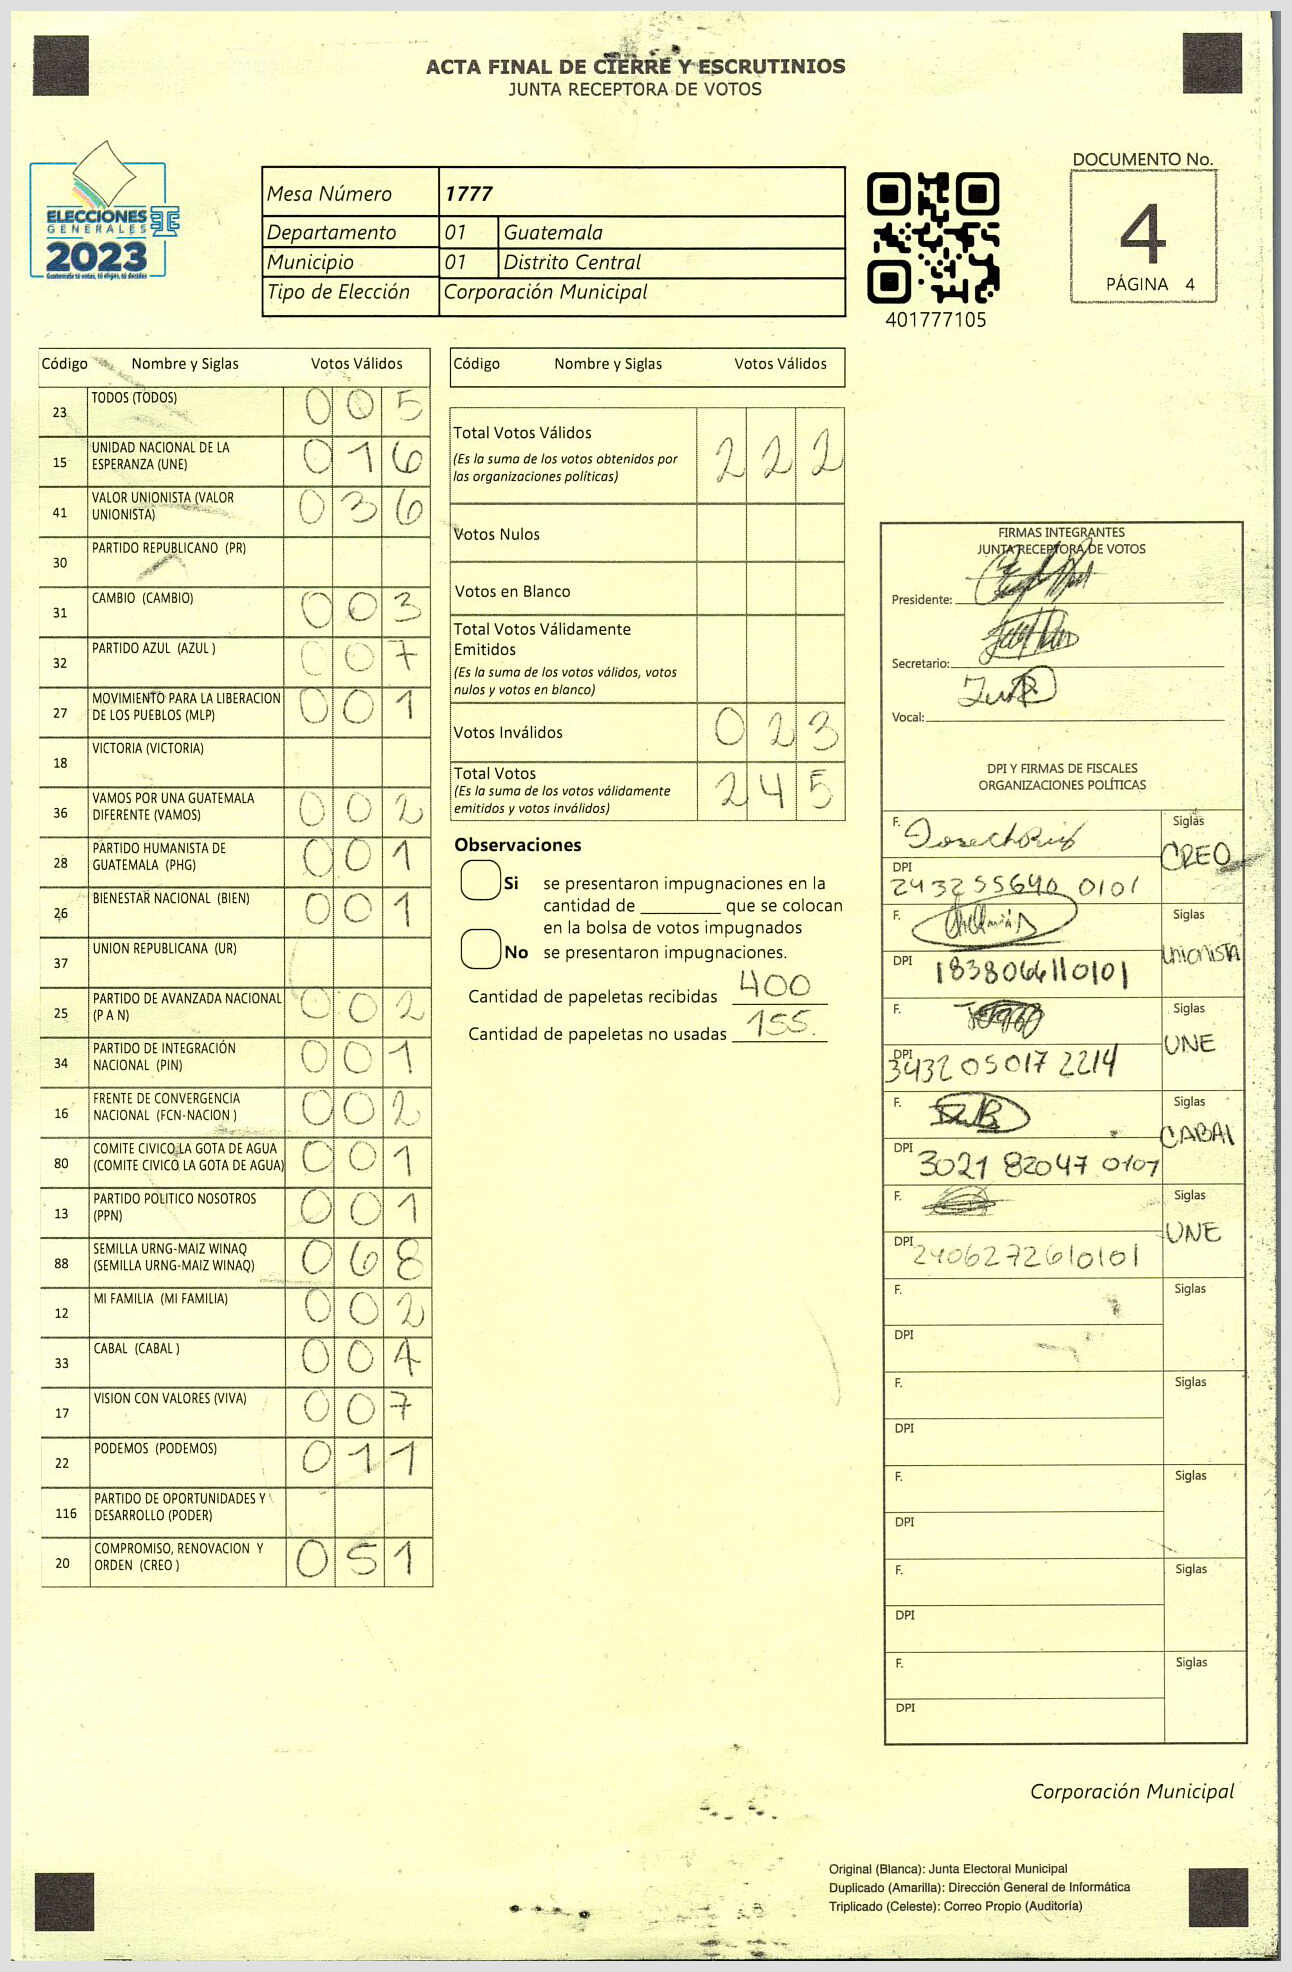 ACTA FINAL DE CIERRE Y ESCRUTINIOS
JUNTA RECEPTORA DE VOTOS
ELECCIONES
GENERALES
2023
Guatemala tú votas, tú eliges, tú decides
Mesa Número 1777
Departamento 01 Guatemala
Municipio 01 Distrito Central
Tipo de Elección Corporación Municipal
401777105
DOCUMENTO No.
4
PÁGINA 4
Código Nombre y Siglas Votos Válidos
23 TODOS (TODOS) 005
15 UNIDAD NACIONAL DE LA ESPERANZA (UNE) 016
41 VALOR UNIONISTA (VALOR UNIONISTA) 036
30 PARTIDO REPUBLICANO (PR)
31 CAMBIO (CAMBIO) 003
32 PARTIDO AZUL (AZUL ) 007
27 MOVIMIENTO PARA LA LIBERACION DE LOS PUEBLOS (MLP) 001
18 VICTORIA (VICTORIA)
36 VAMOS POR UNA GUATEMALA DIFERENTE (VAMOS) 002
28 PARTIDO HUMANISTA DE GUATEMALA (PHG) 001
26 BIENESTAR NACIONAL (BIEN) 001
37 UNION REPUBLICANA (UR)
25 PARTIDO DE AVANZADA NACIONAL (P A N) 002
34 PARTIDO DE INTEGRACIÓN NACIONAL (PIN) 001
16 FRENTE DE CONVERGENCIA NACIONAL (FCN-NACION ) 002
80 COMITE CIVICO LA GOTA DE AGUA (COMITE CIVICO LA GOTA DE AGUA) 001
13 PARTIDO POLITICO NOSOTROS (PPN) 001
88 SEMILLA URNG-MAIZ WINAQ (SEMILLA URNG-MAIZ WINAQ) 068
12 MI FAMILIA (MI FAMILIA) 002
33 CABAL (CABAL ) 004
17 VISION CON VALORES (VIVA) 007
22 PODEMOS (PODEMOS) 011
116 PARTIDO DE OPORTUNIDADES Y DESARROLLO (PODER)
20 COMPROMISO, RENOVACION Y ORDEN (CREO ) 051
Código Nombre y Siglas Votos Válidos
Total Votos Válidos 222
(Es la suma de los votos obtenidos por
las organizaciones políticas)
Votos Nulos
Votos en Blanco
Total Votos Válidamente
Emitidos
(Es la suma de los votos válidos, votos
nulos y votos en blanco)
Votos Inválidos 023
Total Votos 245
(Es la suma de los votos válidamente
emitidos y votos inválidos)
Observaciones
Si se presentaron impugnaciones en la
cantidad de ________ que se colocan
en la bolsa de votos impugnados
No se presentaron impugnaciones.
Cantidad de papeletas recibidas 400
Cantidad de papeletas no usadas 155.
FIRMAS INTEGRANTES
JUNTA RECEPTORA DE VOTOS
Presidente:
Secretario:
Vocal:
DPI Y FIRMAS DE FISCALES
ORGANIZACIONES POLÍTICAS
F. Siglas
CREO
DPI 243255640 0101
F. Siglas
Unionista
DPI 1838066110101
F. Siglas
UNE
DPI 3432 05017 2214
F. Siglas
CABAL
DPI 3021 82047 0107
F. Siglas
UNE
DPI 2406272610101
F. Siglas
DPI
F. Siglas
DPI
F. Siglas
DPI
F. Siglas
DPI
F. Siglas
DPI
Corporación Municipal
Original (Blanca): Junta Electoral Municipal
Duplicado (Amarilla): Dirección General de Informática
Triplicado (Celeste): Correo Propio (Auditoría)